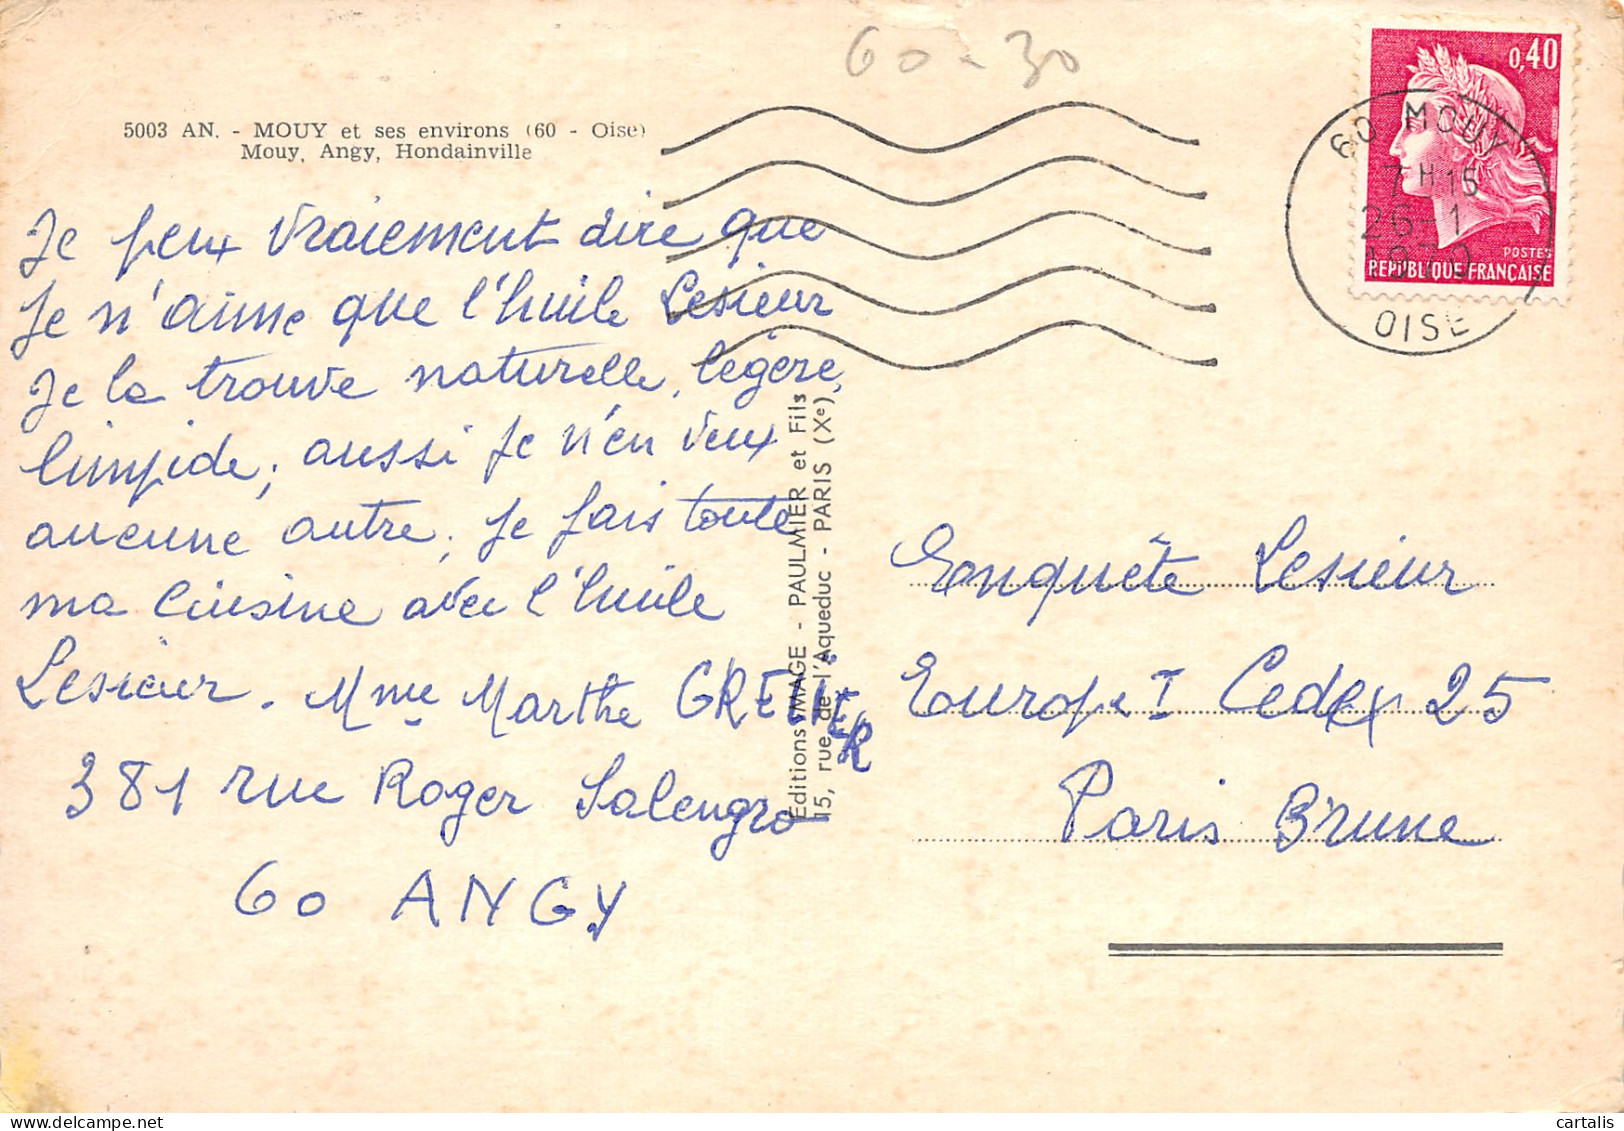 60 - 30
5003 AN. - MOUY et ses environs (60 - Oise)
Mouy, Angy, Hondainville
0,40
POSTES
REPUBLIQUE FRANÇAISE
60 MOUY
7H15
26-1
1970
OISE
Je peux vraiement dire que
Je n'aime que l'huile Lesieur
Je la trouve naturelle, légère,
limpide; aussi je n'en veux
aucune autre, je fais toute
ma cuisine avec l'huile
Lesieur. Mme Marthe
381 rue Roger Salengro
60 ANGY
Editions IMAGE - PAULMIER et Fils
15, rue de l'Aqueduc - PARIS (Xe)
Enquête Lesieur
Europe I Cedex 25
Paris Brune
cartalis
delcampe.net